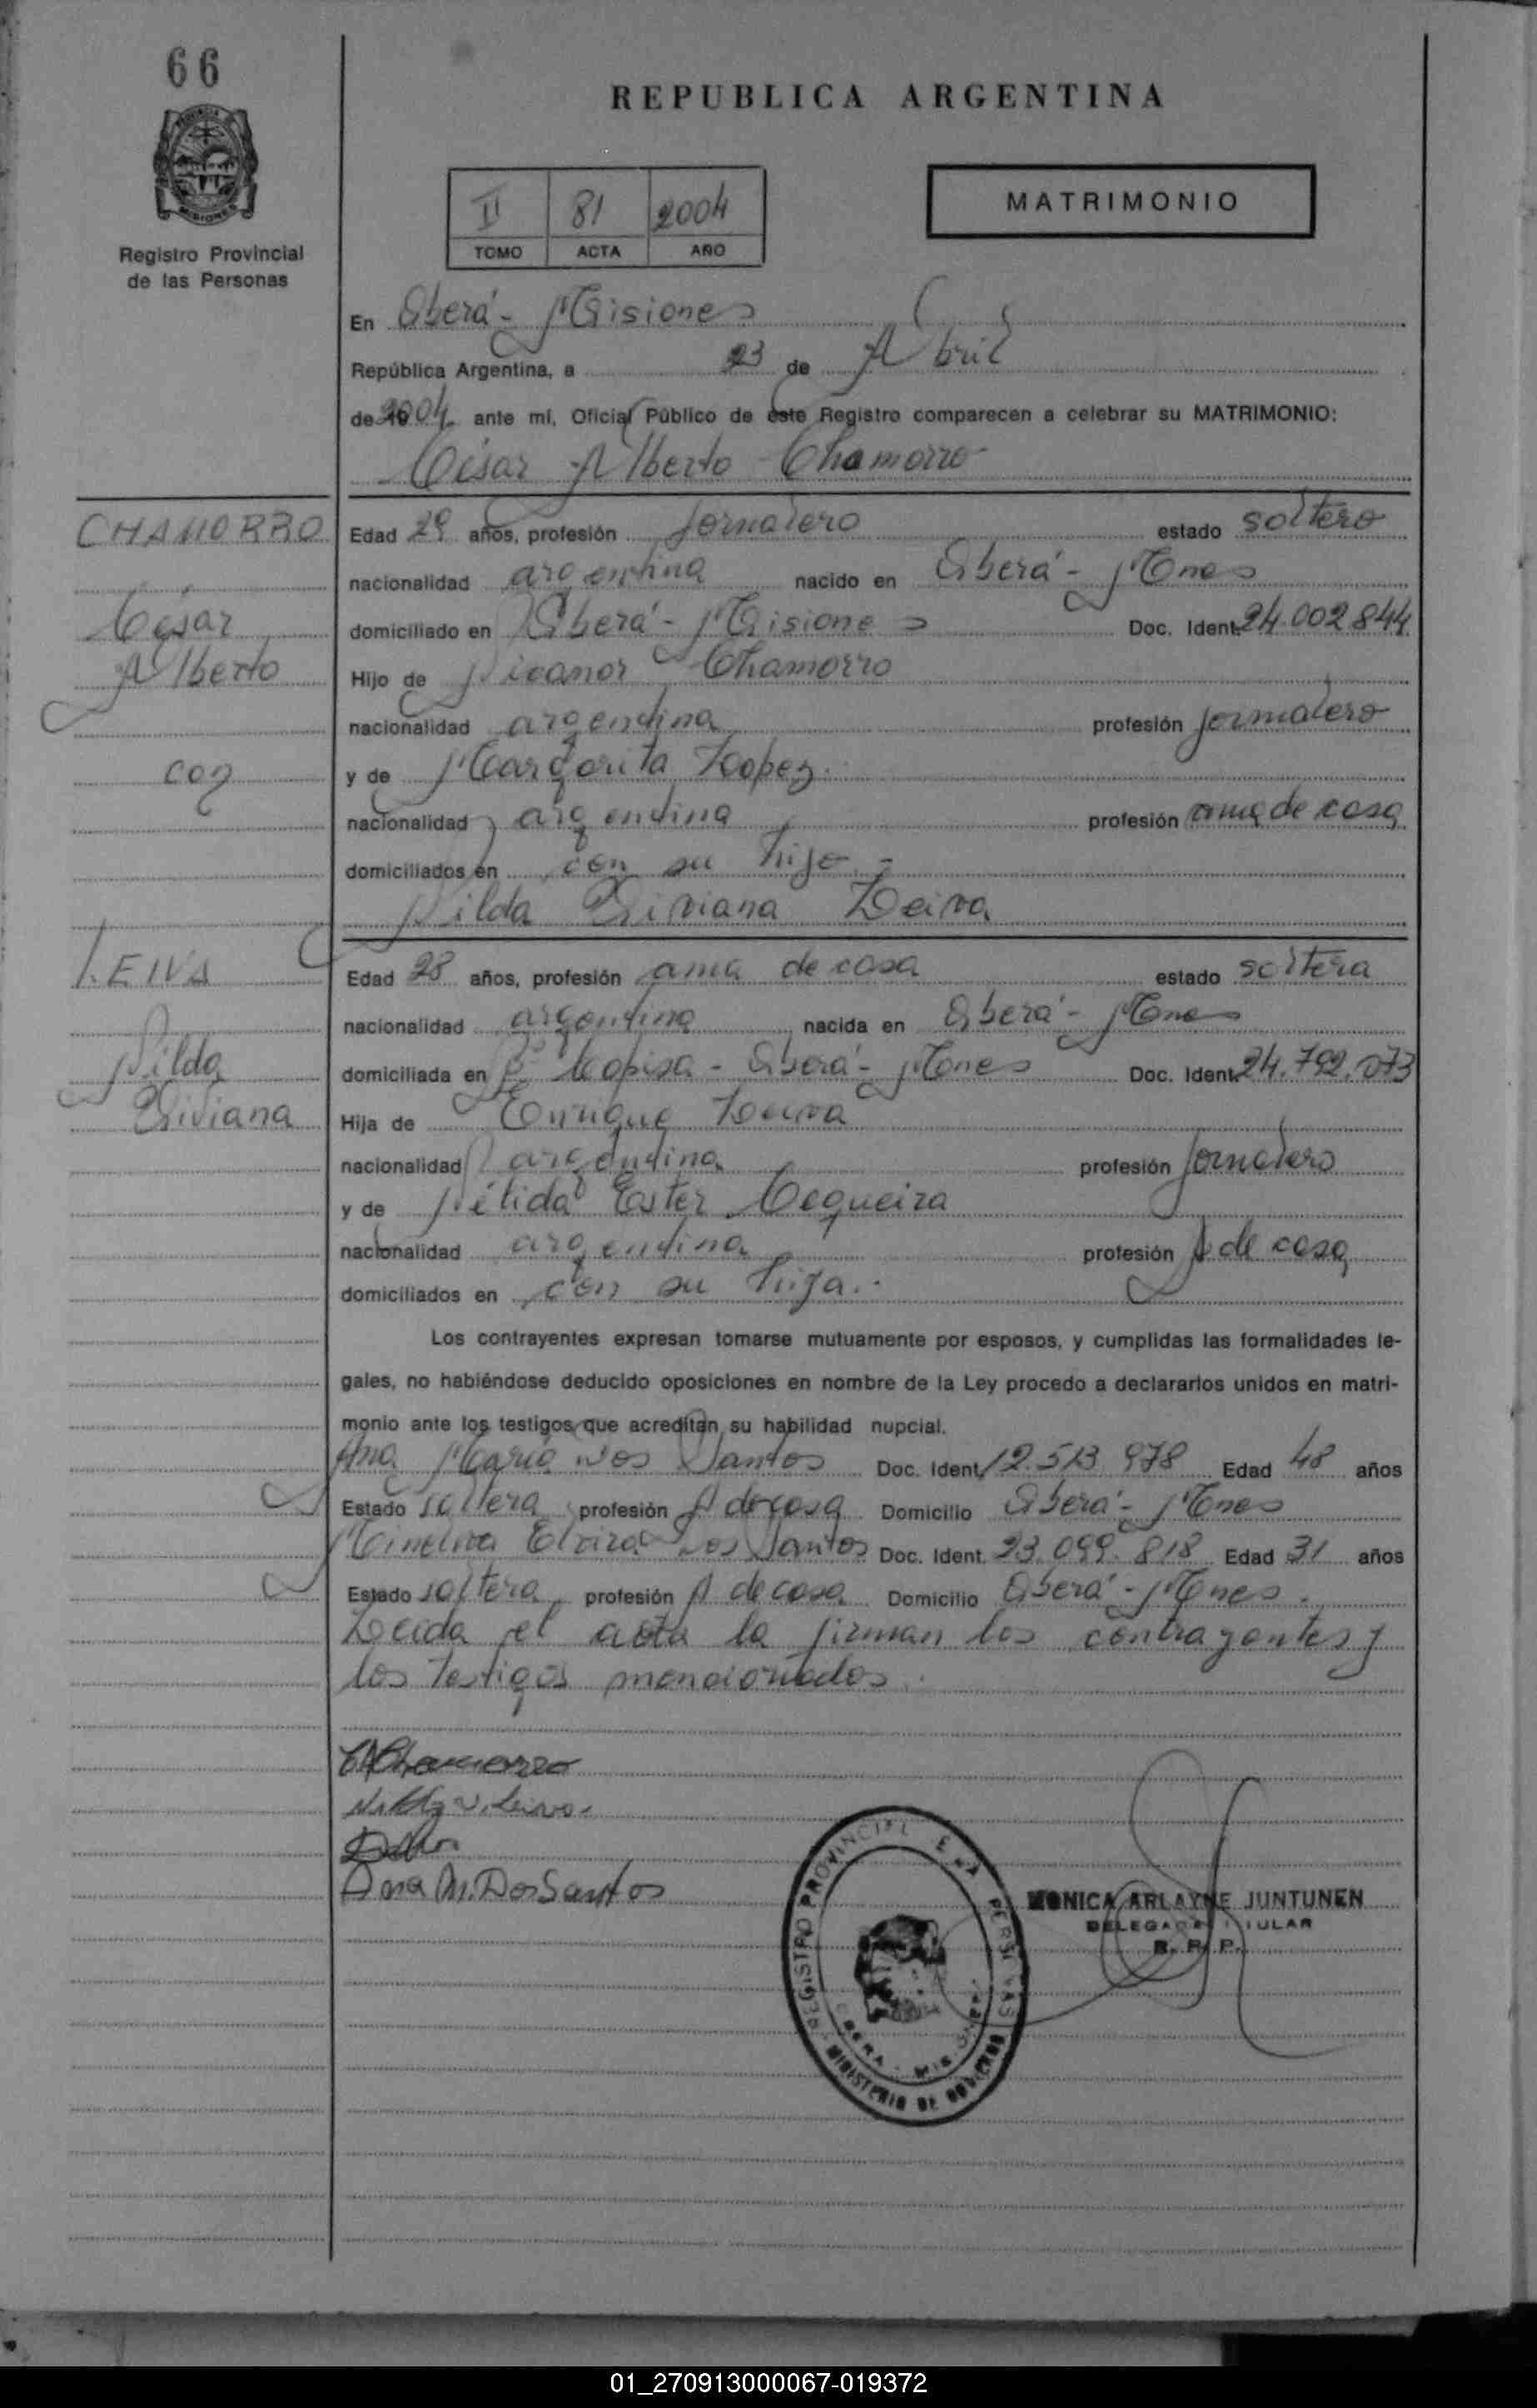 66
REPUBLICA ARGENTINA
II 81 2004
TOMO ACTA AÑO
MATRIMONIO
Registro Provincial
de las Personas
En Oberá - Misiones
República Argentina, a 23 de Abril
de 2004 ante mí, Oficial Público de este Registro comparecen a celebrar su MATRIMONIO:
César Alberto Chamorro
CHAMORRO
César
Alberto
con
LEIVA
Nilda
Viviana
Edad 29 años, profesión Jornalero estado soltero
nacionalidad argentina nacido en Oberá - Mnes
domiciliado en Oberá - Misiones Doc. Ident. 24.002.844
Hijo de Nicanor Chamorro
nacionalidad argentina profesión jornalero
y de Margarita Lopez.
nacionalidad argentina profesión ama de casa
domiciliados en con su hijo -
Nilda Viviana Leiva
Edad 28 años, profesión ama de casa estado soltera
nacionalidad argentina nacida en Oberá - Mnes
domiciliada en Bº Copisa - Oberá - Mnes Doc. Ident. 24.792.073
Hija de Enrique Leiva
nacionalidad argentina profesión Jornalero
y de Nélida Ester Cequeira
nacionalidad argentina profesión A de casa
domiciliados en con su hija.-
Los contrayentes expresan tomarse mutuamente por esposos, y cumplidas las formalidades le-
gales, no habiéndose deducido oposiciones en nombre de la Ley procedo a declararlos unidos en matri-
monio ante los testigos que acreditan su habilidad nupcial.
Ana María Dos Santos Doc. Ident. 12.513.978 Edad 48 años
Estado soltera profesión A de casa Domicilio Oberá - Mnes
Elvira Dos Santos Doc. Ident. 23.099.818 Edad 31 años
Estado soltera profesión A de casa Domicilio Oberá - Mnes.
Leida el acta la firman los contrayentes y
los testigos mencionados.
Chamorro
Nilda V. Leiva.
Ana M. Dos Santos
REGISTRO PROVINCIAL DE LAS PERSONAS
OBERA - MISIONES
MINISTERIO DE GOBIERNO
MONICA ARLAYNE JUNTUNEN
DELEGADA TITULAR
R. P. P.
01_270913000067-019372